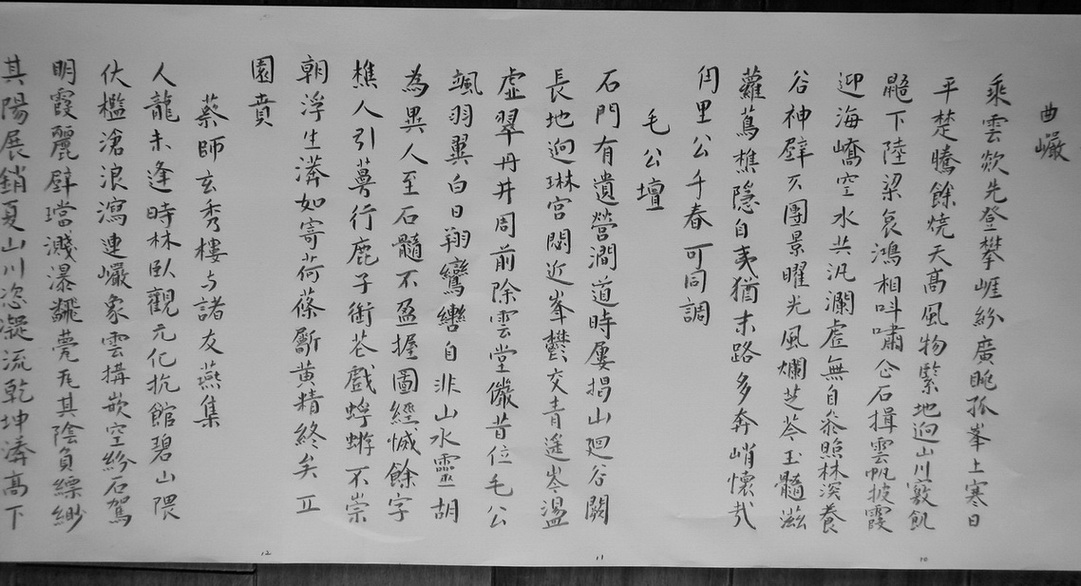 曲巖
乘雲欻先登攀崕紛廣眺孤峯上寒日
平楚騰餘燒天高風物緊地迥山川竅飢
鼯下陸梁哀鴻相叫嘯企石揖雲帆披霞
迎海嶠空水共汎瀾虛無自參照林深養
谷神壁仄團景曜光風爛芝苓玉髓滋
蘿蔦樵隱自夷猶末路多奔峭懷哉
甪里公千春可同調
毛公壇
石門有遺營澗道時屢揭山廻谷闕
長地迥琳宮閟近峯欝交青遙岑盪
虛翠丹井周前除雲堂儼昔位毛公
颯羽翼白日翔鸞轡自非山水靈胡
為異人至石髓不盈握圖經恆餘字
樵人引蕚行鹿子銜花戲蜉蝣不崇
朝浮生濟如寄荷蓧斸黃精終矣丘
園賁
蔡師玄秀樓与諸友燕集
人龍未逢時林臥觀元化抗館碧山隈
伏檻滄浪瀉連巖象雲搆嵌空紛石駕
明霞麗壁璫濺瀑飜甍瓦其陰負縹緲
其陽展銷夏山川恣凝流乾坤濟高下
10
11
12